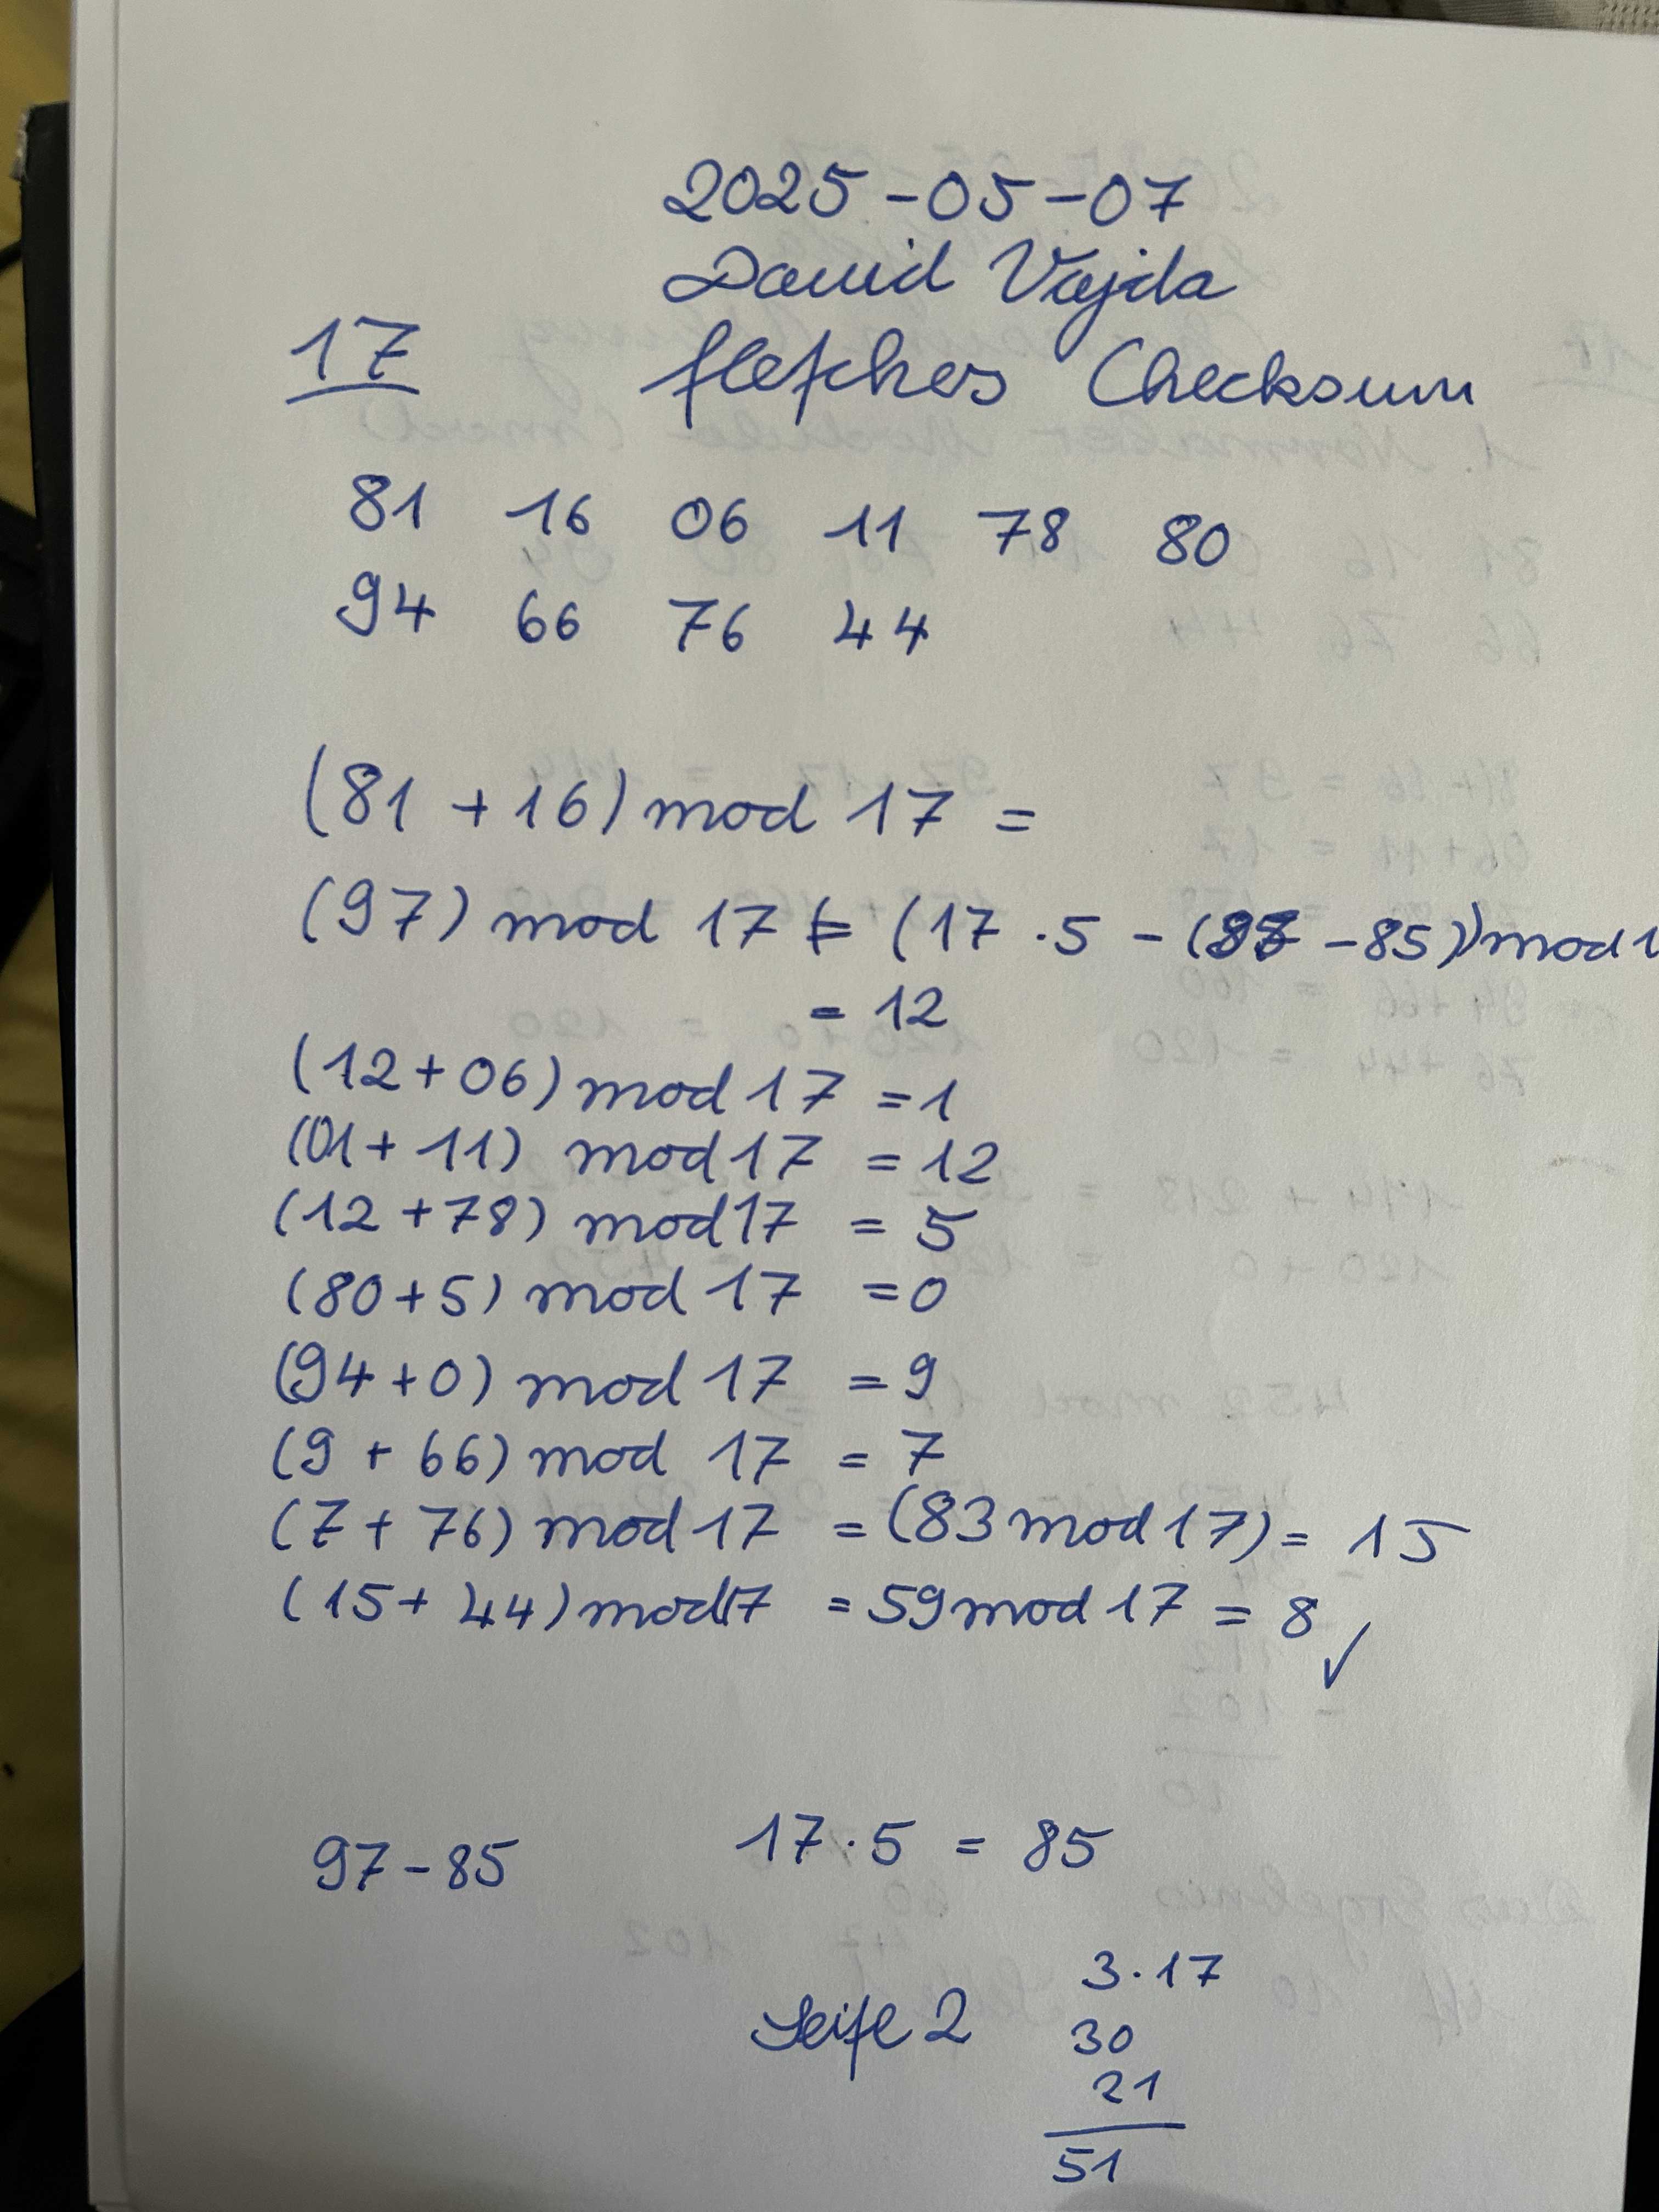 2025-05-07
David Vajda
17 fletchers Checksum
81 16 06 11 78 80
94 66 76 44
(81 + 16) mod 17 =
(97) mod 17 = (17 · 5 - (97 - 85)) mod 1
= 12
(12+06) mod 17 = 1
(01+ 11) mod 17 = 12
(12 +78) mod 17 = 5
(80+5) mod 17 = 0
(94+0) mod 17 = 9
(9 + 66) mod 17 = 7
(7 + 76) mod 17 = (83 mod 17) = 15
(15+ 44) mod 17 = 59 mod 17 = 8 ✓
97-85 17·5 = 85
3·17
Seite 2 30
21
51